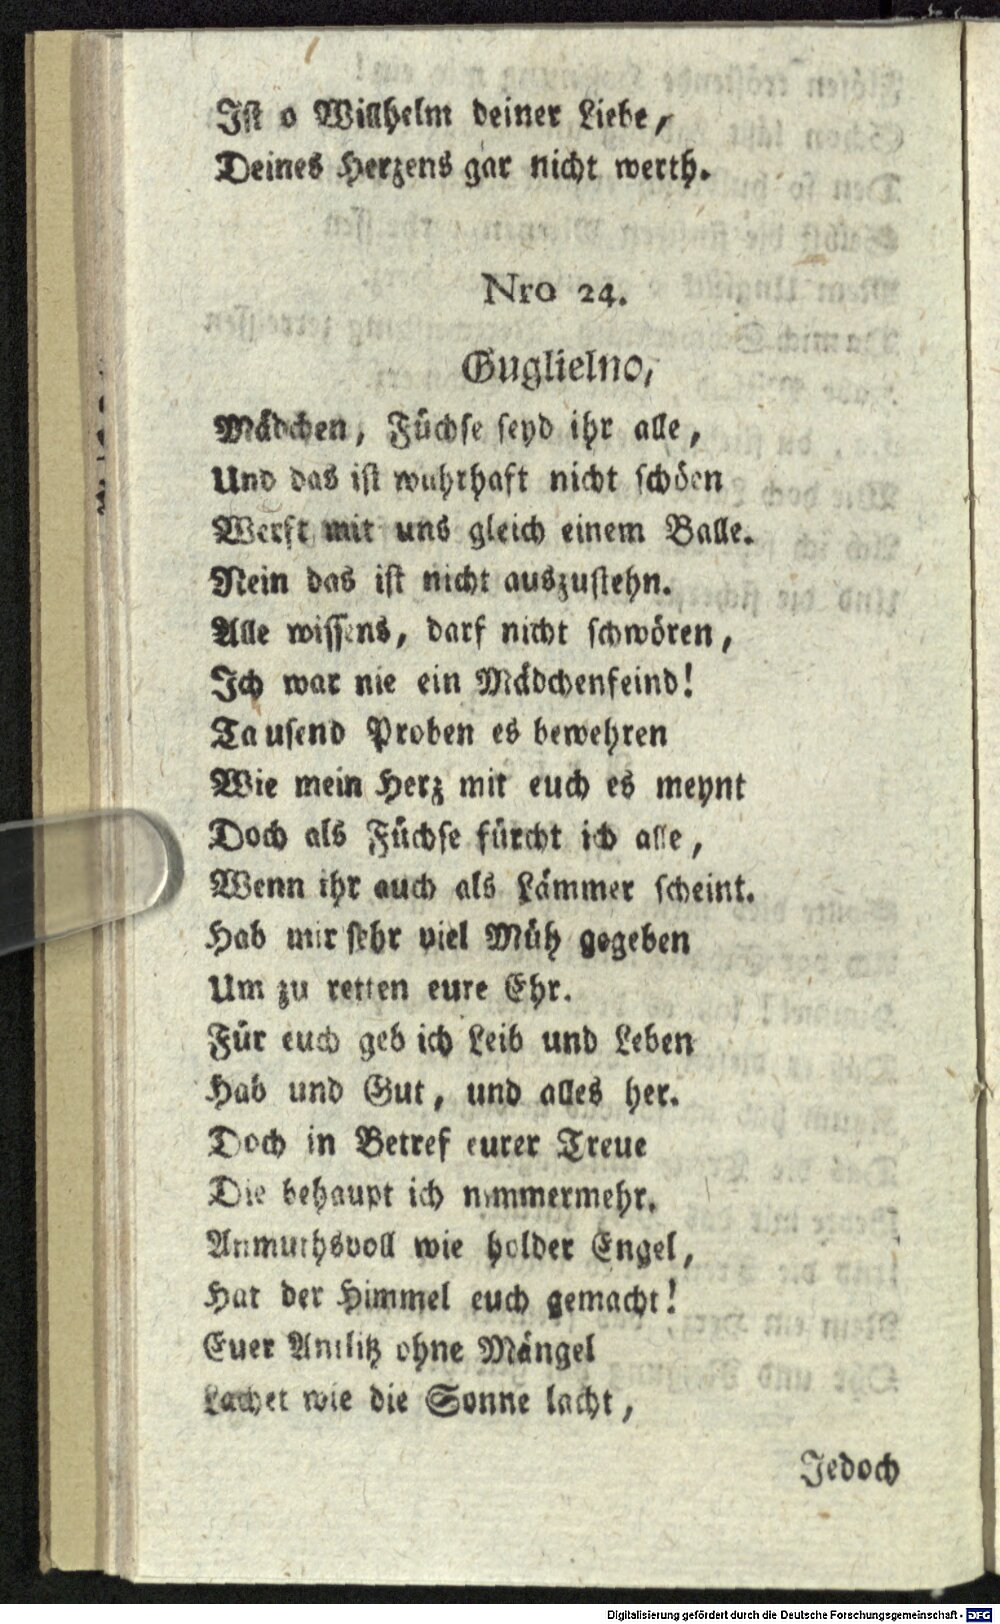 Ist o Willhelm deiner Liebe,
Deines Herzens gar nicht werth.
Nro 24.
Guglielno,
Mädchen, Füchse seyd ihr alle,
Und das ist wahrhaft nicht schöen
Werft mit uns gleich einem Balle.
Nein das ist nicht auszustehn.
Alle wissens, darf nicht schwören,
Ich war nie ein Mädchenfeind!
Tausend Proben es bewehren
Wie mein Herz mit euch es meynt
Doch als Füchse fürcht ich alle,
Wenn ihr auch als Lämmer scheint.
Hab mir sehr viel Müh gegeben
Um zu retten eure Ehr.
Für euch geb ich Leib und Leben
Hab und Gut, und alles her.
Doch in Betref eurer Treue
Die behaupt ich nimmermehr.
Anmuthsvoll wie holder Engel,
Hat der Himmel euch gemacht!
Euer Antlitz ohne Mängel
Lachet wie die Sonne lacht,
Jedoch
Digitalisierung gefördert durch die Deutsche Forschungsgemeinschaft - DFG